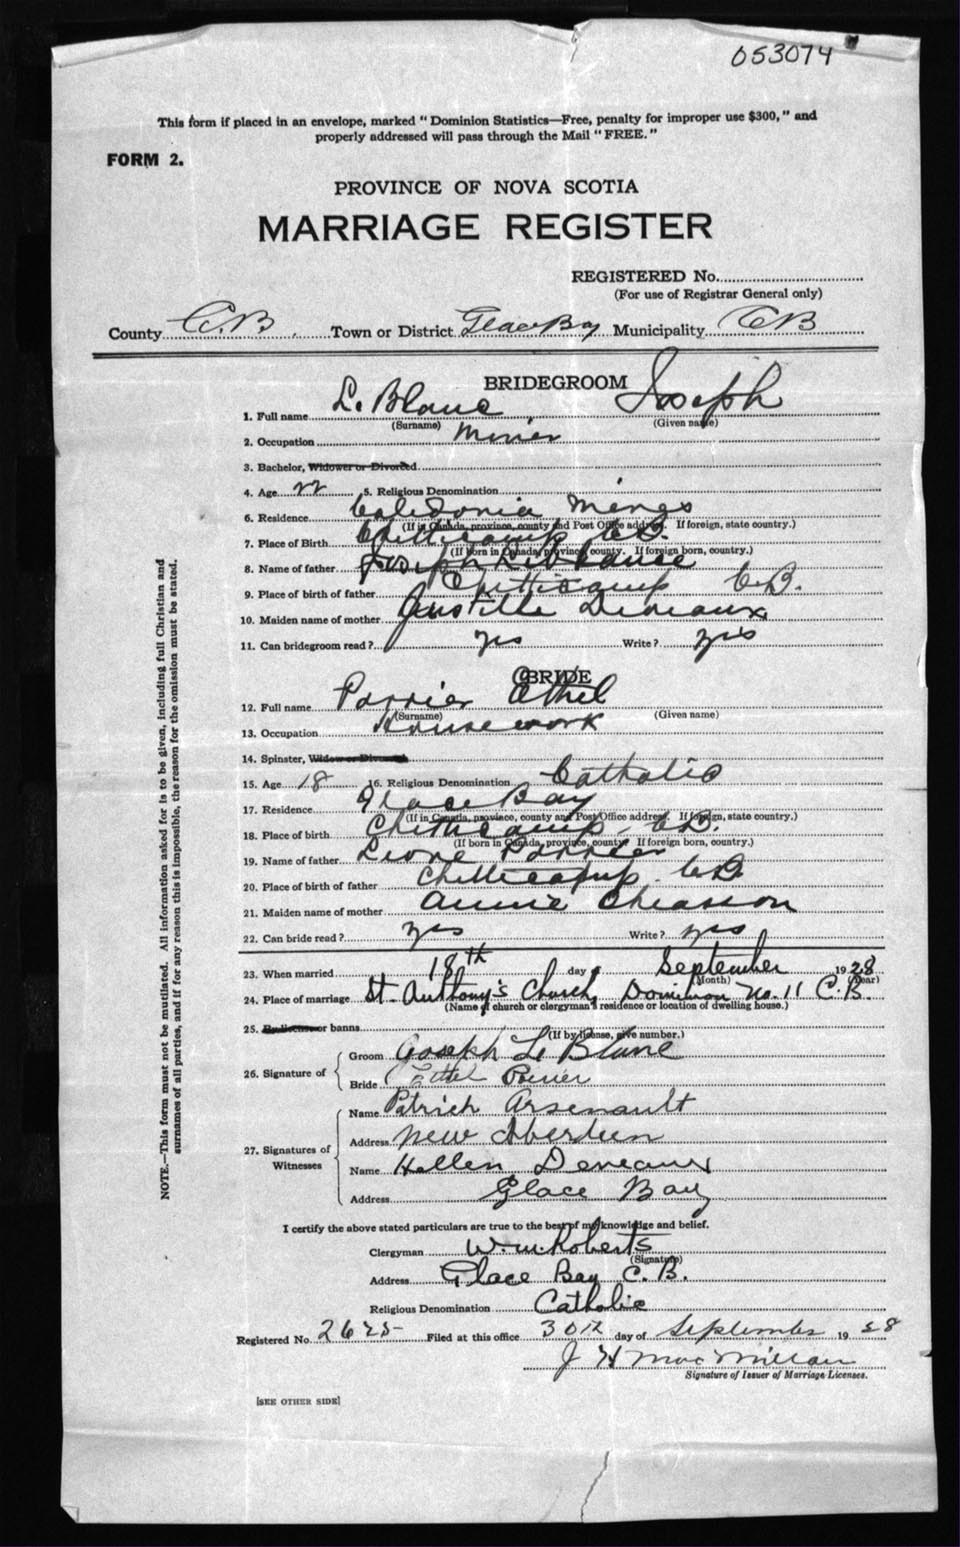 053074
This form if placed in an envelope, marked "Dominion Statistics—Free, penalty for improper use $300," and
properly addressed will pass through the Mail "FREE."
FORM 2.
PROVINCE OF NOVA SCOTIA
MARRIAGE REGISTER
REGISTERED No.
(For use of Registrar General only)
County C.B. Town or District Glace Bay Municipality CB
BRIDEGROOM
1. Full name Le Blanc Joseph
(Surname) (Given name)
2. Occupation Miner
3. Bachelor, Widower or Divorced
4. Age 22 5. Religious Denomination
6. Residence Caledonia Mines
(If in Canada, province, county and Post Office address. If foreign, state country.)
7. Place of Birth Chetticamp C.B.
(If born in Canada, province, county. If foreign born, country.)
8. Name of father Joseph LeBlance
9. Place of birth of father Chetticamp C.B.
10. Maiden name of mother Deveaux
11. Can bridegroom read? yes Write? yes
BRIDE
12. Full name Porrier Ethel
(Surname) (Given name)
13. Occupation Housework
14. Spinster, Widow or Divorced
15. Age 18 16. Religious Denomination Catholic
17. Residence Glace Bay
(If in Canada, province, county and Post Office address. If foreign, state country.)
18. Place of birth Chetticamp C.B.
(If born in Canada, province, county. If foreign born, country.)
19. Name of father Leone Porrier
20. Place of birth of father Chetticamp C.B.
21. Maiden name of mother Annie Cheasson
22. Can bride read? yes Write? yes
23. When married 18th day of September 1928
(Month) (Year)
24. Place of marriage St. Anthony's Church, Dominion No. 11 C.B.
(Name of church or clergyman's residence or location of dwelling house.)
25. or banns
(If by license, give number.)
26. Signature of
Groom Joseph Le Blanc
Bride Ethel Poirier
27. Signatures of Witnesses
Name Patrick Arsenault
Address New Aberdeen
Name Hellen Deveaux
Address Glace Bay
I certify the above stated particulars are true to the best of my knowledge and belief.
Clergyman W. M. Roberts
(Signature)
Address Glace Bay C.B.
Religious Denomination Catholic
Registered No. 2625 Filed at this office 30th day of September 1928
J H MacMillan
Signature of Issuer of Marriage Licenses.
[SEE OTHER SIDE]
NOTE.—This form must not be mutilated. All information asked for is to be given, including full Christian and
surnames of all parties, and if for any reason this is impossible, the reason for the omission must be stated.